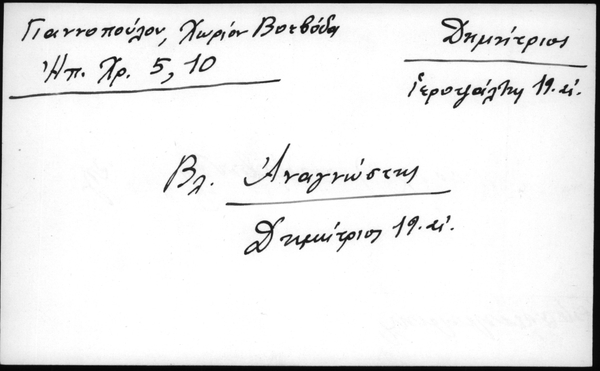 Γιαννοπούλου, Χωρίον Βοεβόδα
Ἠπ. Χρ. 5, 10
Δημήτριος
Ἱεροψάλτης 19. αἰ.
Βλ. Ἀναγνώστης
Δημήτριος 19. αἰ.